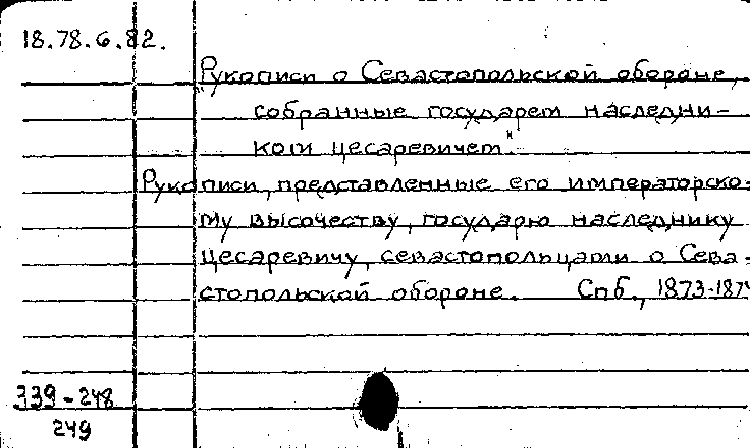 18.78.6.82.
"Рукописи о Севастопольской обороне,
собранные государем наследни-
ком цесаревичем".
Рукописи, представленные его императорско-
му высочеству, государю наследнику
цесаревичу, севастопольцами о Сева-
стопольской обороне. Спб., 1873-1874
339-248
249